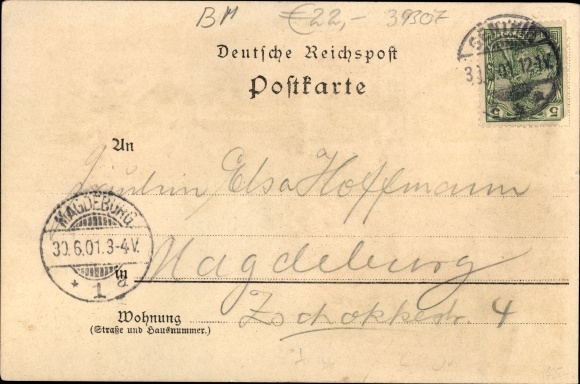 BM €22,- 39307
Deutsche Reichspost
Postkarte
30.6.01.12-1V.
5 5
An
Fräulein Elsa Hoffmann
MAGDEBURG
30.6.01.3-4V.
* 1 g
in Magdeburg
Wohnung
(Straße und Hausnummer.)
Zschokkestr. 4